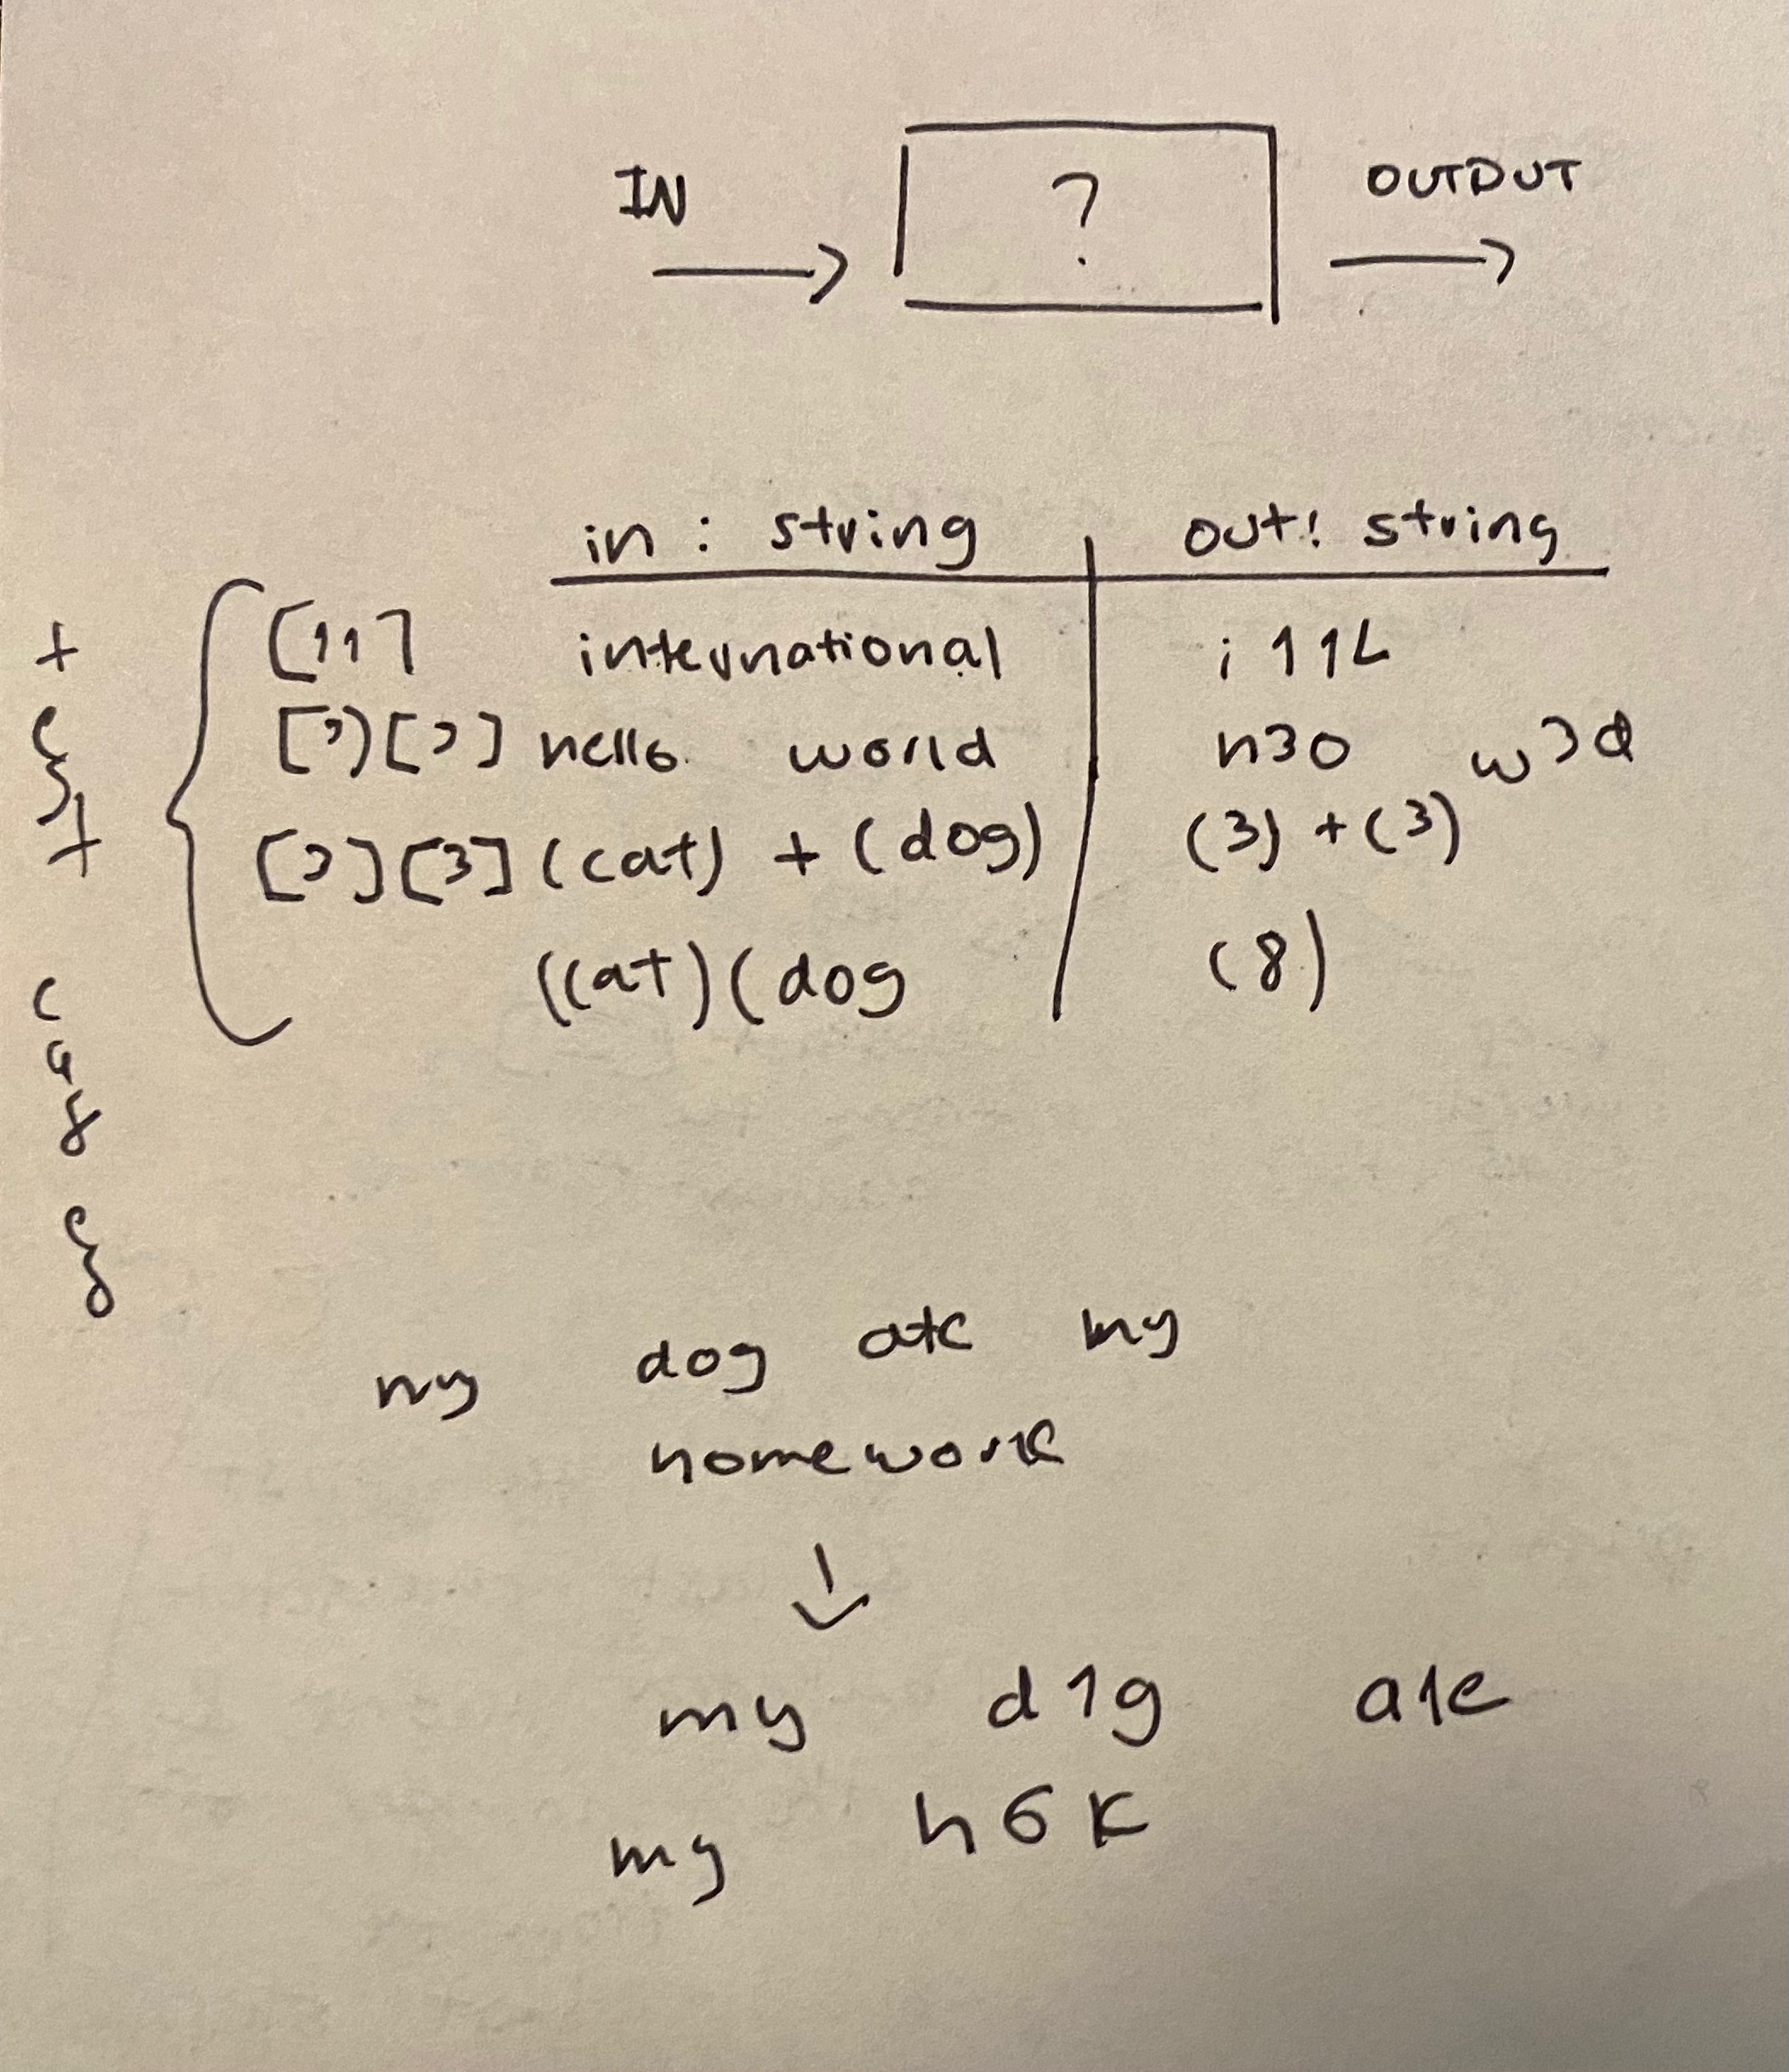 IN ? OUTPUT
in : string out: string
[11] international i 11L
[3][3] hello world h30 w3d
[3][3] (cat) + (dog) (3) + (3)
((at)(dog (8)
test
cases
my dog ate my
homework
my d1g a1e
my h6k